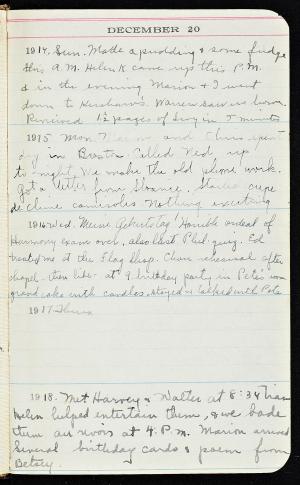 DECEMBER 20
1914. Sun. Made a pudding & some fudge
this A.M. Helen K came up this P.M.
& in the evening Marion & I went
down to Warren saw us home.
Reviewed 1½ pages of Livy in 5 minutes
1915 Mon. and Chris spent
day in Boston. Called Ned up
to-night. We make the old phone work.
Got a letter from Started crepe
de chine camisoles. Nothing exciting
1916 Wed. Meine Geburtstag! Horrible ordeal of
Harmony exam over, also last Phil. quiz. Ed
treated me at the Flag Shop. Choir rehearsal after
chapel - then libe. at 9 birthday party in Pete's room
grand cake with candles, stayed & talked with Pete
1917 Thurs
1918. Met Harvey & Walter at 8:34 train
Helen helped entertain them, & we bade
them au revoirs at 4: P.M. Marion arrived
Several birthday cards & poem from
Betsey.